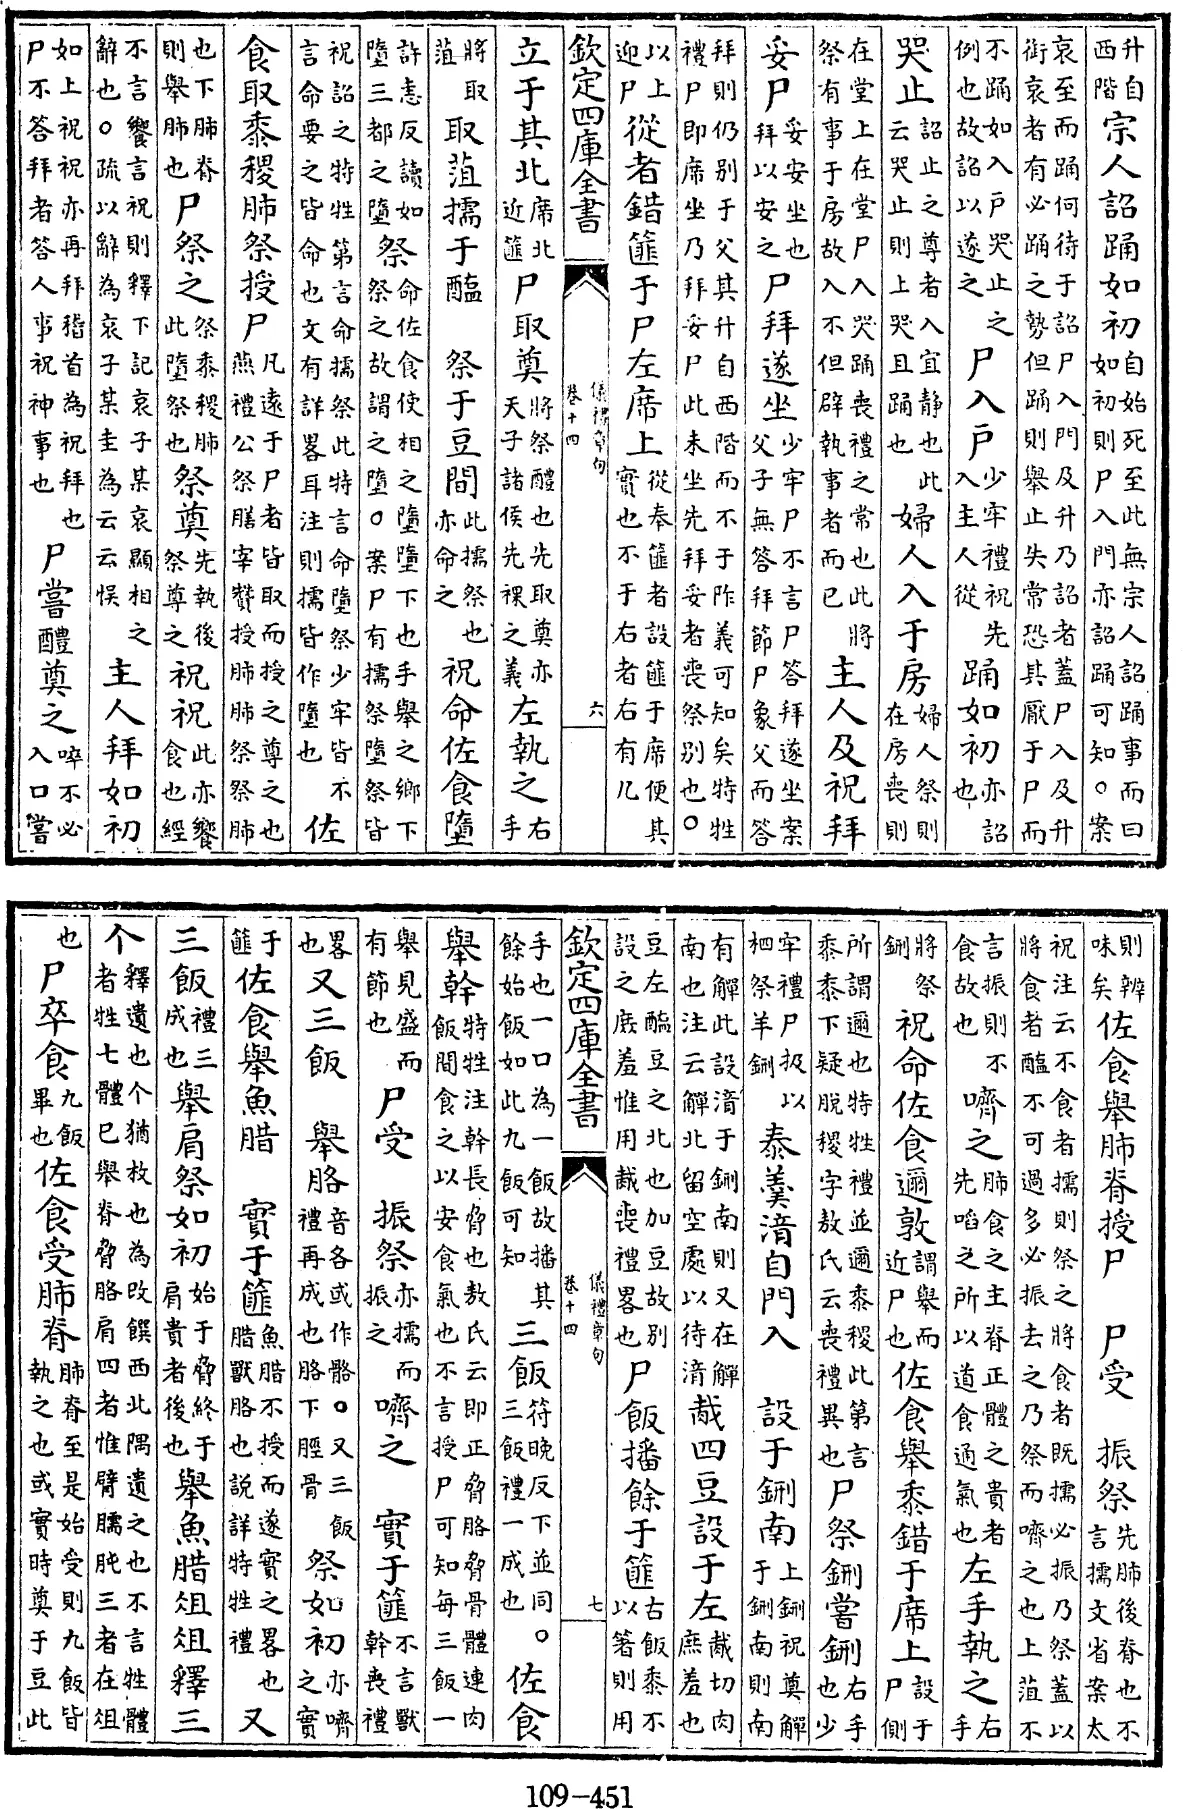 升自西階宗人詔踊如初自始死至此無宗人詔踊事而曰如初則尸入門亦詔踊可知○案
哀至而踊何待于詔尸入門及升乃詔者蓋尸入及升銜哀者有必踊之勢但踊則舉止失常恐其厭于尸而
不踊如入戶哭止之例也故詔以遂之尸入戶少牢禮祝先入主人從踊如初亦詔也
哭止詔止之尊者入宜静也此云哭止則上哭且踊也婦人入于房婦人祭則在房喪則
在堂上在堂尸入哭踊喪禮之常也此將祭有事于房故入不但辟執事者而已主人及祝拜
妥尸妥安坐也拜以安之尸拜遂坐少牢尸不言尸答拜遂坐案父子無答拜節尸象父而答
拜則仍别于父其升自西階而不于阼義可知矣特牲禮尸即席坐乃拜妥尸此未坐先拜妥者喪祭别也○
以上迎尸從者錯篚于尸左席上從奉篚者設篚于席便其實也不于右者右有几
欽定四庫全書 儀禮章句 卷十四 六
立于其北席北近篚尸取奠將祭醴也先取奠亦天子諸侯先祼之義左執之右手
將取菹取菹擩于醢 祭于豆間此擩祭也亦命之祝命佐食墮
許恚反讀如墮三都之墮祭命佐食使相之墮墮下也手舉之鄉下祭之故謂之墮○案尸有擩祭墮祭皆
祝詔之特牲第言命擩祭此特言命墮祭少牢皆不言命要之皆命也文有詳畧耳注則擩皆作墮也佐
食取黍稷肺祭授尸凡遠于尸者皆取而授之尊之也燕禮公祭膳宰贊授肺肺祭祭肺
也下肺脊則舉肺也尸祭之祭黍稷肺此墮祭也祭奠先執後祭尊之祝祝此亦饗食也經
不言饗言祝則釋下記哀子某哀顯相之辭也○疏以辭為哀子某圭為云云悞主人拜如初
如上祝祝亦再拜稽首為祝拜也尸不答拜者答人事祝神事也尸嘗醴奠之啐不必入口嘗
則辨味矣佐食舉肺脊授尸 尸受 振祭先肺後脊也不言擩文省案太
祝注云不食者擩則祭之將食者既擩必振乃祭蓋以將食者醢不可過多必振去之乃祭而嚌之也上菹不
言振則不食故也嚌之肺食之主脊正體之貴者先啗之所以道食通氣也左手執之右手
將祭鉶祝命佐食邇敦謂舉而近尸也佐食舉黍錯于席上設于尸側
所謂邇也特牲禮並邇黍稷此第言黍黍下疑脱稷字敖氏云喪禮異也尸祭鉶嘗鉶右手也少
牢禮尸扱以柶祭羊鉶泰羮湆自門入 設于鉶南上鉶祝奠觶于鉶南則南
有觶此設湆于鉶南則又在觶南也注云觶北留空處以待湆胾四豆設于左胾切肉庶羞也
豆左醢豆之北也加豆故别設之庶羞惟用胾喪禮畧也尸飯播餘于篚古飯黍不以箸則用
欽定四庫全書 儀禮章句 卷十四 七
手也一口為一飯故播其餘始飯如此九飯可知三飯符晚反下並同○三飯禮一成也佐食
舉幹特牲注幹長脅也敖氏云即正脅胳脅骨體連肉飯間食之以安食氣也不言授尸可知每三飯一
舉見盛而有節也尸受 振祭亦擩而振之嚌之 實于篚不言獸幹喪禮
畧也又三飯 舉胳音各或作骼○又三飯禮再成也胳下脛骨祭如初亦嚌之實
于篚佐食舉魚腊 實于篚魚腊不授而遂實之畧也腊獸胳也說詳特牲禮又
三飯禮三成也舉肩祭如初始于脅終于肩貴者後也舉魚腊俎俎釋三
个釋遺也个猶枚也為改饌西北隅遺之也不言牲體者牲七體已舉脊脅胳肩四者惟臂臑肫三者在俎
也尸卒食九飯畢也佐食受肺脊肺脊至是始受則九飯皆執之也或實時奠于豆此
109-451